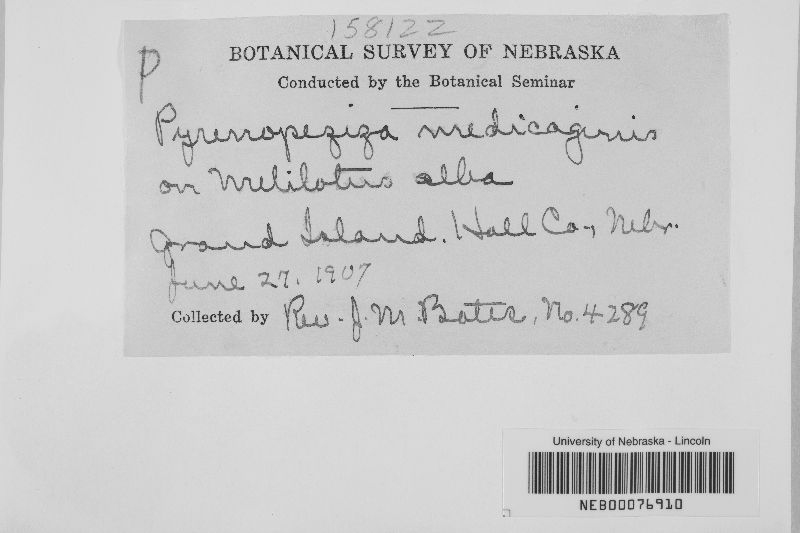 158122
P
BOTANICAL SURVEY OF NEBRASKA
Conducted by the Botanical Seminar
Pyrenopeziza medicaginis
on Melilotus alba
Grand Island. Hall Co., Nebr.
June 27. 1907
Collected by Rev. J. M. Bates, No. 4289
University of Nebraska - Lincoln
NEB00076910